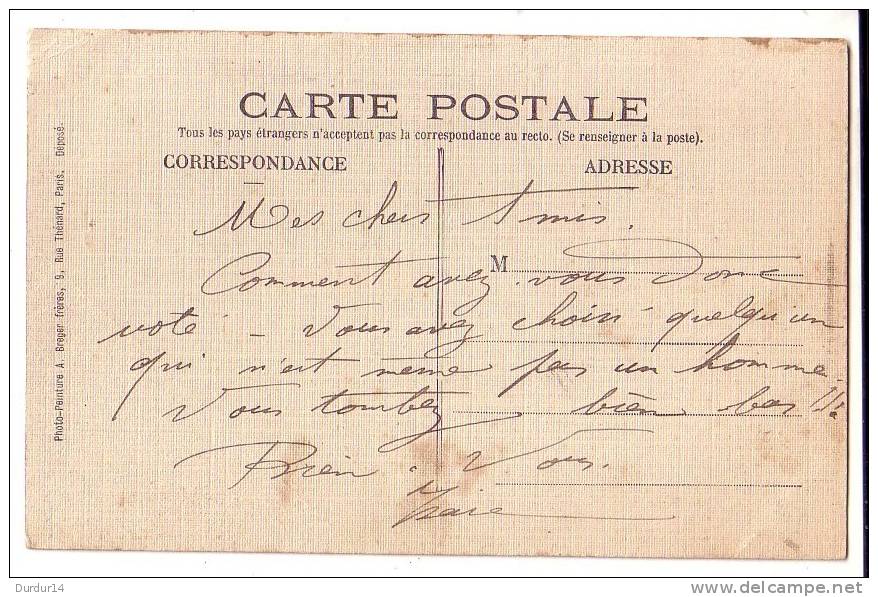 CARTE POSTALE
Tous les pays étrangers n'acceptent pas la correspondance au recto. (Se renseigner à la poste).
CORRESPONDANCE
ADRESSE
Mes chers Amis.
M
Comment avez-vous donc
voté - Vous avez choisi quelqu'un
qui n'est même pas un homme
Vous tombez bien bas !!!
Bien à Vous.
Photo-Peinture A. Breger frères, 9, Rue Thénard, Paris. Déposé.
Durdur14
delcampe.net